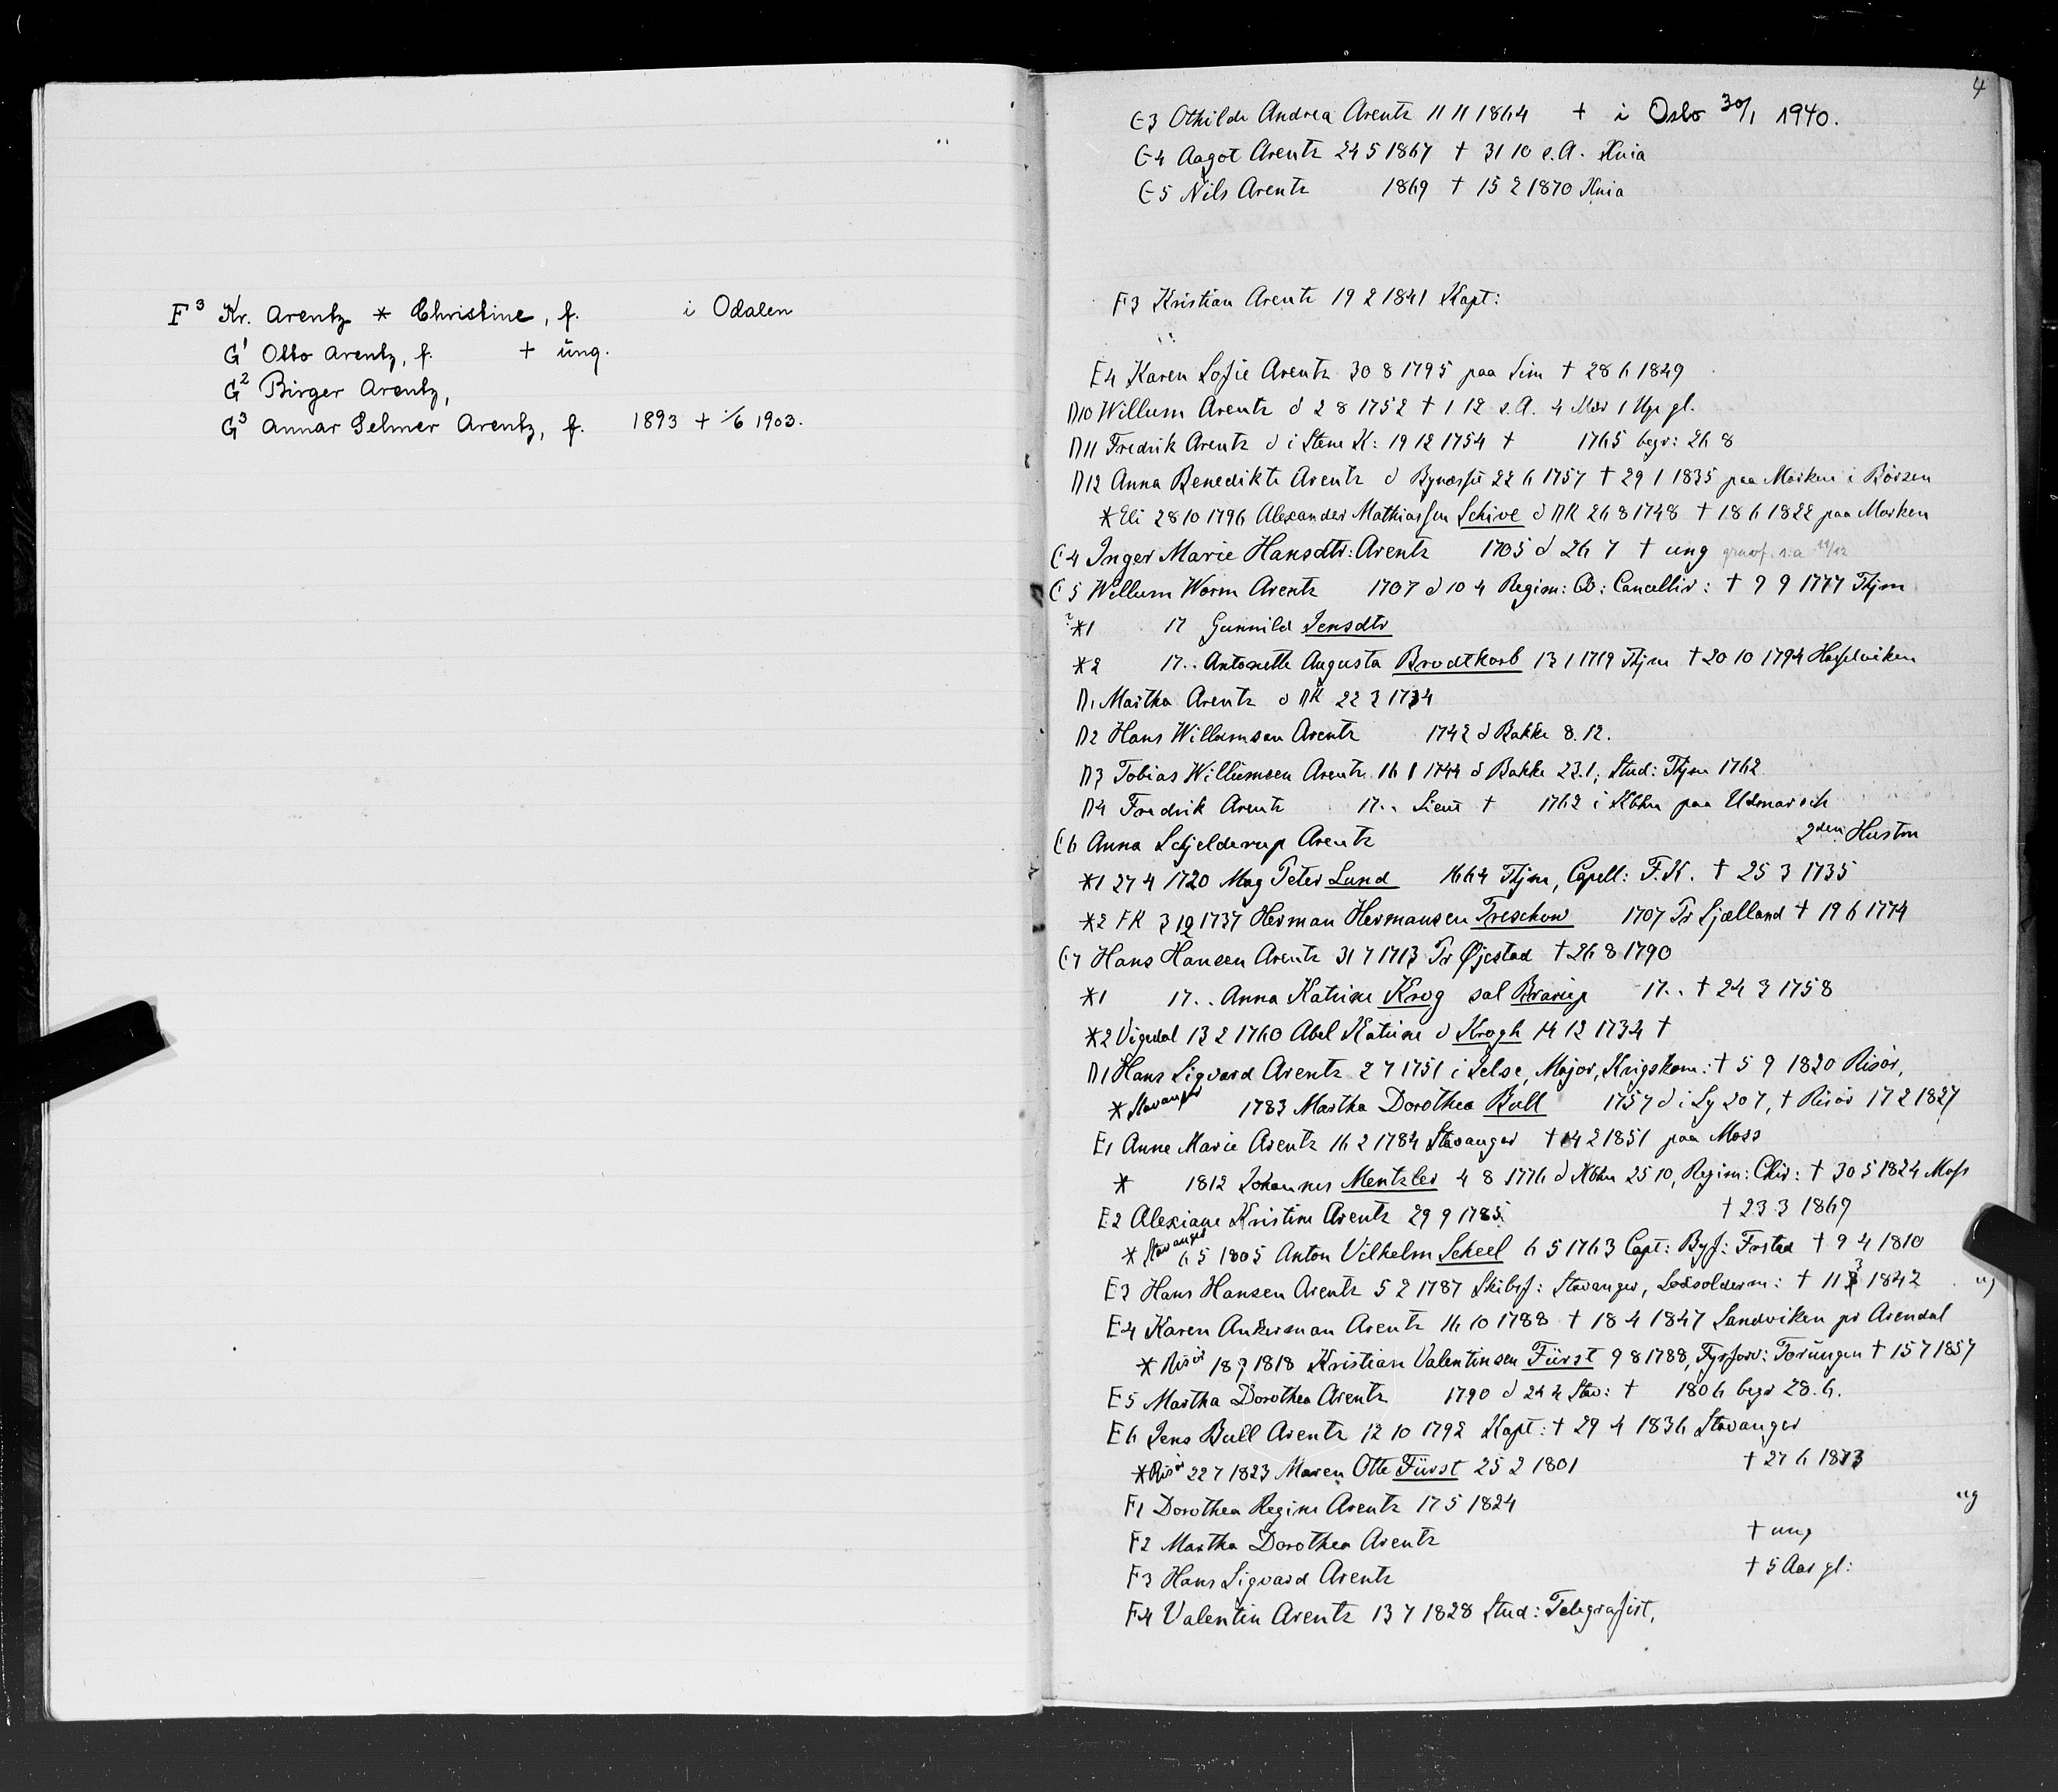 F³ Kr. Arentz * Christine, f. i Odalen
G¹ Otto Arentz, f. + ung.
G² Birger Arentz,
G³ Annar Selmer Arentz, f. 1893 + 1/6 1903.
4
G3 Othilde Andrea Arentz 11 11 1864 + i Oslo 30/1 1940.
G4 Aagot Arentz 24 5 1867 + 31 10 s.A. Knia
G5 Nils Arentz 1869 + 15 2 1870 Knia
F3 Kristian Arentz 19 2 1841 Kapt:
E4 Karen Sofie Arentz 30 8 1795 paa Sim + 28 6 1849
D10 Willum Arentz d 2 8 1752 + 1 12 s.A. 4 Mdr 1 Uge gl.
D11 Fredrik Arentz d i Stene K: 19 12 1754 + 1765 begr: 26 8
D12 Anna Benedikte Arentz d Bynæsset 22 6 1757 + 29 1 1835 paa Morken i Börsen
* Eli 28 10 1796 Alexander Mathiassen Schive d DK 26 8 1748 + 18 6 1822 paa Morken
C4 Inger Marie Hansdtr: Arentz 1705 d 26 7 + ung
C5 Willum Worm Arentz 1707 d 10 4 Regim: Qv: Cancellir: + 9 9 1777 Thjm
? *1 17 Gunnild Jensdtr
*2 17.. Antonette Augusta Brodtkorb 13 1 1719 Thjm + 20 10 1794 Hasselviken
D1 Martha Arentz d DK 22 3 1734
D2 Hans Willumsen Arentz 1742 d Bakke 8. 12.
D3 Tobias Willumsen Arentz 16 1 1744 d Bakke 23.1, Stud: Thjm 1762
D4 Fredrik Arentz 17.. Lieut + 1762 i Kbhn paa Udmarsch
C6 Anna Schjelderup Arentz 2den Hustru
*1 27 4 1720 Mag Peter Lund 1664 Thjm, Capell: F.K. + 25 3 1735
*2 FK 3 12 1737 Herman Hermansen Treschow 1707 Pr Sjælland + 19 6 1774
C7 Hans Hansen Arentz 31 7 1713 Pr Øjestad + 26 8 1790
*1 17.. Anna Katrine Krog sal Brarup 17.. + 24 3 1758
*2 Vigedal 13 2 1760 Abel Katrine d Krogh 14 12 1734 +
D1 Hans Sigvard Arentz 2 7 1751 i Jelse, Major, Krigskom: + 5 9 1820 Risör,
* Stavanger 1783 Martha Dorothea Bull 1757 d i Ly 20 7, + Risör 17 2 1827
E1 Anne Marie Arentz 16 2 1784 Stavanger + 14 2 1851 paa Moss
* 1812 Johannes Mentzler 4 8 1776 d Kbhn 25 10, Regim: Chir: + 30 5 1824 Moss
E2 Alexiane Kristine Arentz 29 9 1785 + 23 3 1869
* Stavanger 6 5 1805 Anton Vilhelm Scheel 6 5 1763 Capt: Byf: Frstad + 9 4 1810
E3 Hans Hansen Arentz 5 2 1787 Skibsf: Stavanger, Lodsolderm: + 11 3 1842 ug
E4 Karen Ankerman Arentz 16 10 1788 + 18 4 1847 Sandviken pr Arendal
* Risör 18 9 1818 Kristian Valentinsen Fürst 9 8 1788, Fyrforv: Torungen + 15 7 1857
E5 Martha Dorothea Arentz 1790 d 24 4 Stav: + 1806 begr 28. 6.
E6 Jens Bull Arentz 12 10 1792 Kapt: + 29 4 1836 Stavanger
* Risör 22 7 1823 Maren Otte Fürst 25 2 1801 + 27 6 1873
F1 Dorothea Regine Arentz 17 5 1824 ug
F2 Martha Dorothea Arentz + ung
F3 Hans Sigvard Arentz + 5 Aar gl:
F4 Valentin Arentz 13 7 1828 Stud: Telegrafist,